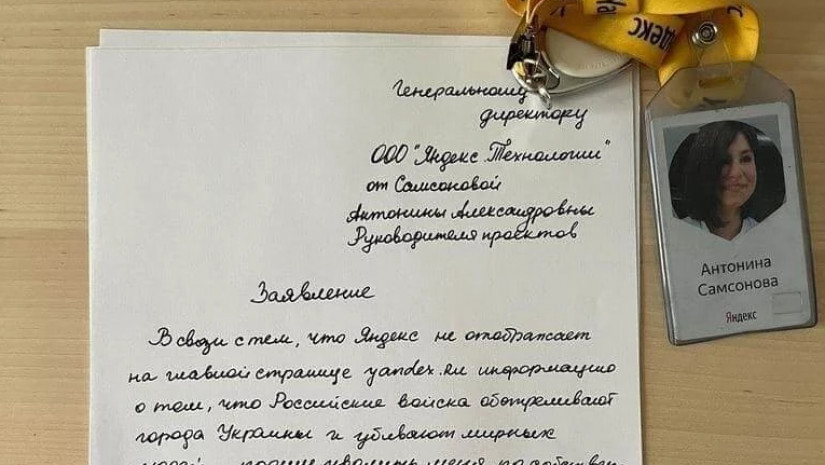 Генеральному
директору
ООО "Яндекс.Технологии"
от Самсоновой
Антонины Александровны
Руководителя проектов
Заявление
В связи с тем, что Яндекс не отображает
на главной странице yandex.ru информацию
о том, что Российские войска обстреливают
города Украины и убивают мирных
людей, прошу уволить меня по собствен-
Яндекс
Антонина
Самсонова
Яндекс